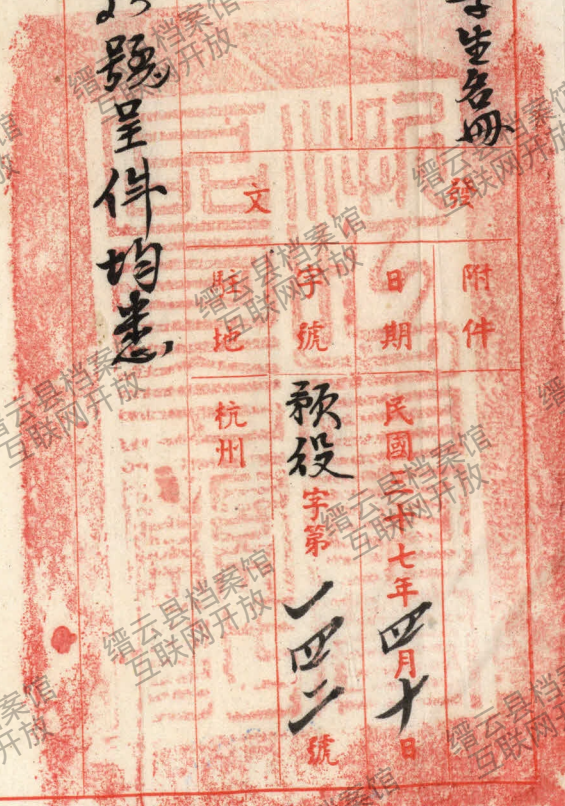 生名冊
發文
附件
日期 民國三十七年四月十日
字號 役字第一四二號
駐地 杭州
號呈件均悉
缙云县档案馆
互联网开放